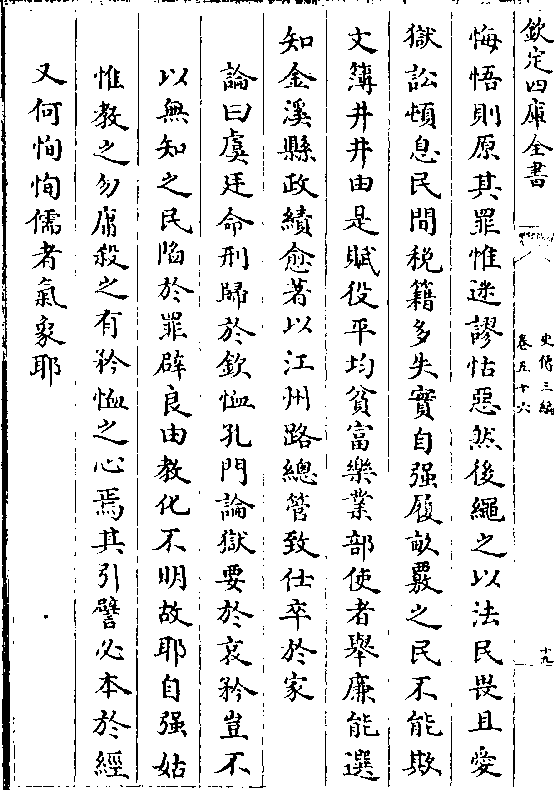 欽定四庫全書
史傳三編
卷五十六
十九
悔悟則原其罪惟迷謬怙惡然後繩之以法民畏且愛
獄訟頓息民間税籍多失實自强履畝覈之民不能欺
文簿井井由是賦役平均貧富樂業部使者舉廉能選
知金溪縣政績愈著以江州路總管致仕卒於家
論曰虞廷命刑歸於欽恤孔門論獄要於哀矜豈不
以無知之民陷於罪辟良由教化不明故耶自强姑
惟教之勿庸殺之有矜恤之心焉其引譬必本於經
又何恂恂儒者氣象耶